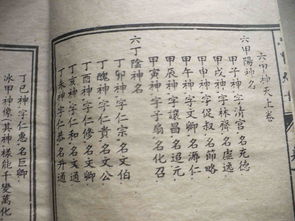 六甲神天上卷
六甲陽神名
甲子神字清宮名元德
甲戌神字林齊名虛逸
甲申神字名節略
甲午神字文卿名源仁
甲辰神字讓昌名追元
甲寅神字子扇名化召
六丁陰神名
丁卯神字仁宗名文伯
丁醜神字仁貴名文公
丁亥神字仁名文
丁酉神字仁修名文
丁未神字仁恭名升通
丁巳神字仁惠名巨卿
冰甲神像其神樣能千變萬化